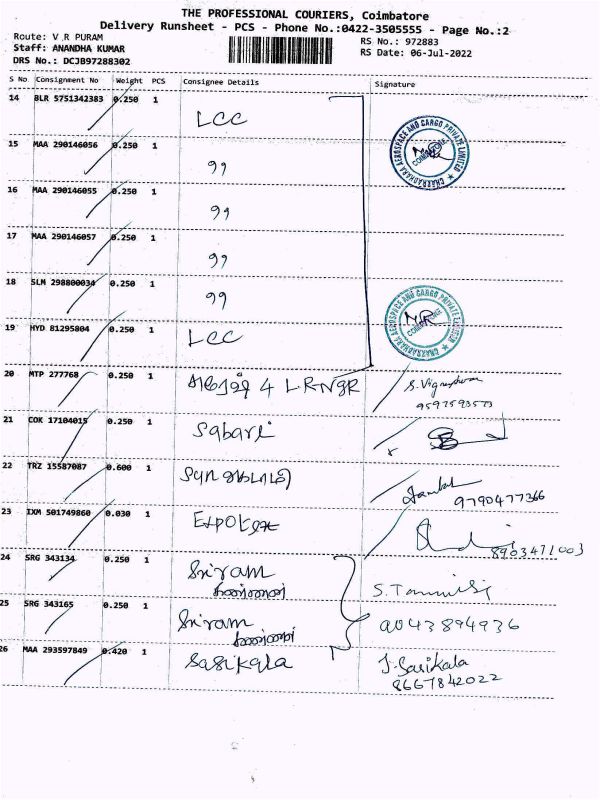 THE PROFESSIONAL COURIERS, Coimbatore
Delivery Runsheet - PCS - Phone No.:0422-3505555 - Page No.:2
Route: V R PURAM
Staff: ANANDHA KUMAR
DRS No.: DCJB97288302
RS No.: 972883
RS Date: 06-Jul-2022
S No Consignment No Weight PCS Consignee Details Signature
14 BLR 5751342383 0.250 1 LCC
15 MAA 290146056 0.250 1 99
CHAKRADHARA AEROSPACE AND CARGO PRIVATE LIMITED ★
COIMBATORE
16 MAA 290146055 0.250 1 99
17 MAA 290146057 0.250 1 99
18 SLM 298800034 0.250 1 99
19 HYD 81295804 0.250 1 LCC
CHAKRADHARA AEROSPACE AND CARGO PRIVATE LIMITED ★
COIMBATORE
20 MTP 277768 0.250 1 4 LRNGR
21 COK 17104015 0.250 1 Sabari
22 TRZ 15587087 0.600 1 9790477366
23 IXM 501749860 0.030 1 8903471003
24 SRG 343134 0.250 1 Sriram
25 SRG 343165 0.250 1 Sriram
26 MAA 293597849 0.420 1 Sasikala J. Sasikala
8667842022